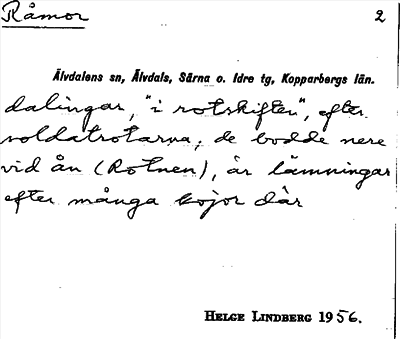 Råmor 2
Älvdalens sn, Älvdals, Särna o. Idre tg, Kopparbergs län.
dalingar, "i rotskiften", efter
soldatrotarna; de bodde nere
vid ån (Rotnen), är lämningar
efter många kojor där
HELGE LINDBERG 1956.